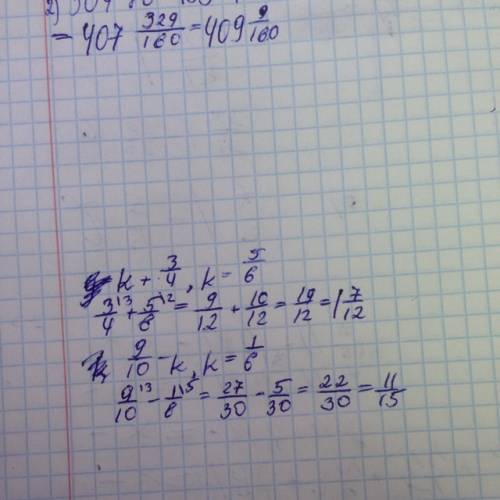 = 407 329/160 = 409 9/160
k + 3/4, k = 5/6
3/4 + 5/6 = 9/12 + 10/12 = 19/12 = 1 7/12
9/10 - k, k = 1/6
9/10 - 1/6 = 27/30 - 5/30 = 22/30 = 11/15